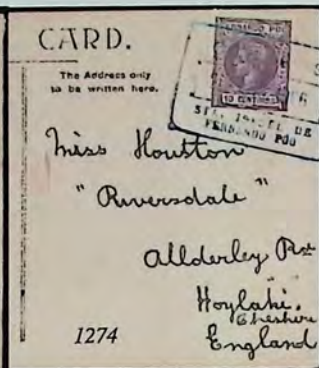 CARD.
The Address only
to be written here.
FERNANDO POO
10 CENTIMOS
STA ISABEL DE
FERNANDO POO
Miss Houston
"Riversdale"
Allderley Rd
Hoylake.
Cheshire
England
1274